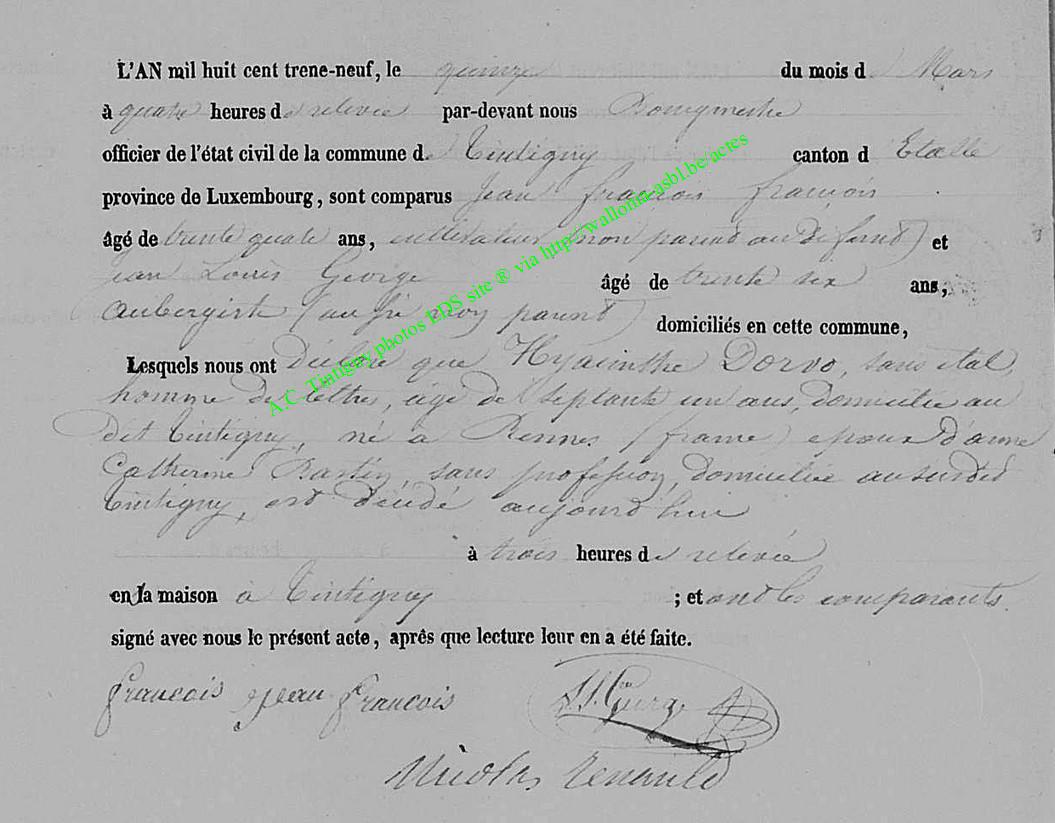 L'AN mil huit cent trene-neuf, le quinze du mois d e Mars
à quatre heures d e relevée par-devant nous Bourgmestre
officier de l'état civil de la commune d. e Tintigny canton d' Etalle
province de Luxembourg, sont comparus Jean françois françois
âgé de trente quatre ans, cultivateur (non parent au défunt) et
Jean Louis George âgé de trente six ans,
aubergiste (aussi non parent) domiciliés en cette commune,
Lesquels nous ont déclaré que Hyacinthe Dorvo, sans état,
homme de lettres, âgé de septante un ans, domicilié au
dit Tintigny, né à Rennes (france) epoux d'anne
Catherine sans profession, domiciliée au susdit
Tintigny, est décédé aujourd'hui
à trois heures d e relevée
en la maison à Tintigny ; et ont les comparants
signé avec nous le présent acte, après que lecture leur en a été faite.
francois jean francois
Nicolas Renauld
A.C. Tintigny photos EDS site ® via http://wallonia-asbl.be/actes